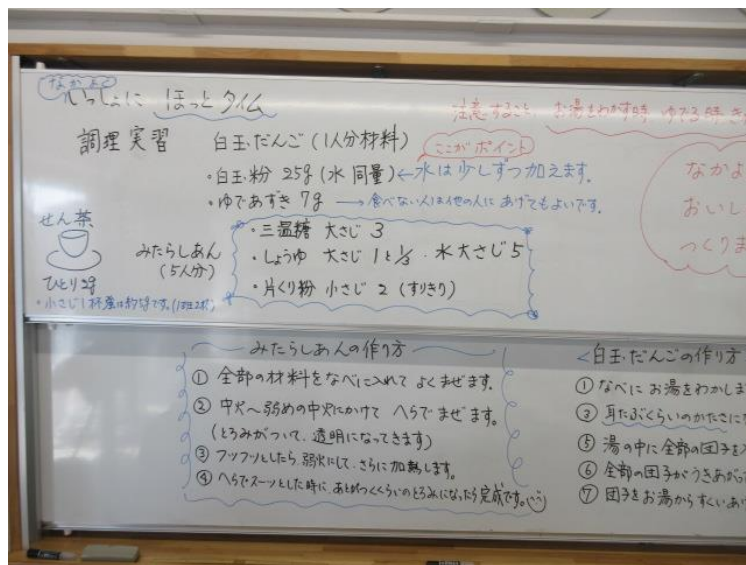 なかよく
いっしょに ほっとタイム
注意すること お湯をわかす時 ゆでる時 き
調理実習 白玉だんご (1人分材料)
ここがポイント
・白玉粉 25g (水 同量) ← 水は少しずつ加えます。
・ゆであずき 7g → 食べない人は他の人に あげてもよいです。
なかよ
おいし
つくりま
せん茶
ひとり2g
・小さじ1杯
みたらしあん
(5人分)
・三温糖 大さじ 3
・しょうゆ 大さじ 1と1/3 ・水 大さじ 5
・片くり粉 小さじ 2 (すりきり)
みたらしあんの作り方
① 全部の材料をなべに入れて よくまぜます。
② 中火へ弱めの中火にかけて へらで まぜます。
(とろみがついて、透明になってきます)
③ フツフツとしたら、弱火にして、さらに加熱します。
④ へらでスーッとした時に、あとがつくくらいのとろみになったら完成です。
<白玉だんごの作り方
① なべに お湯をわかしま
③ 耳たぶくらいのかたさに
⑤ 湯の中に全部の団子を入
⑥ 全部の団子がうきあがっ
⑦ 団子をお湯からすくいあげ